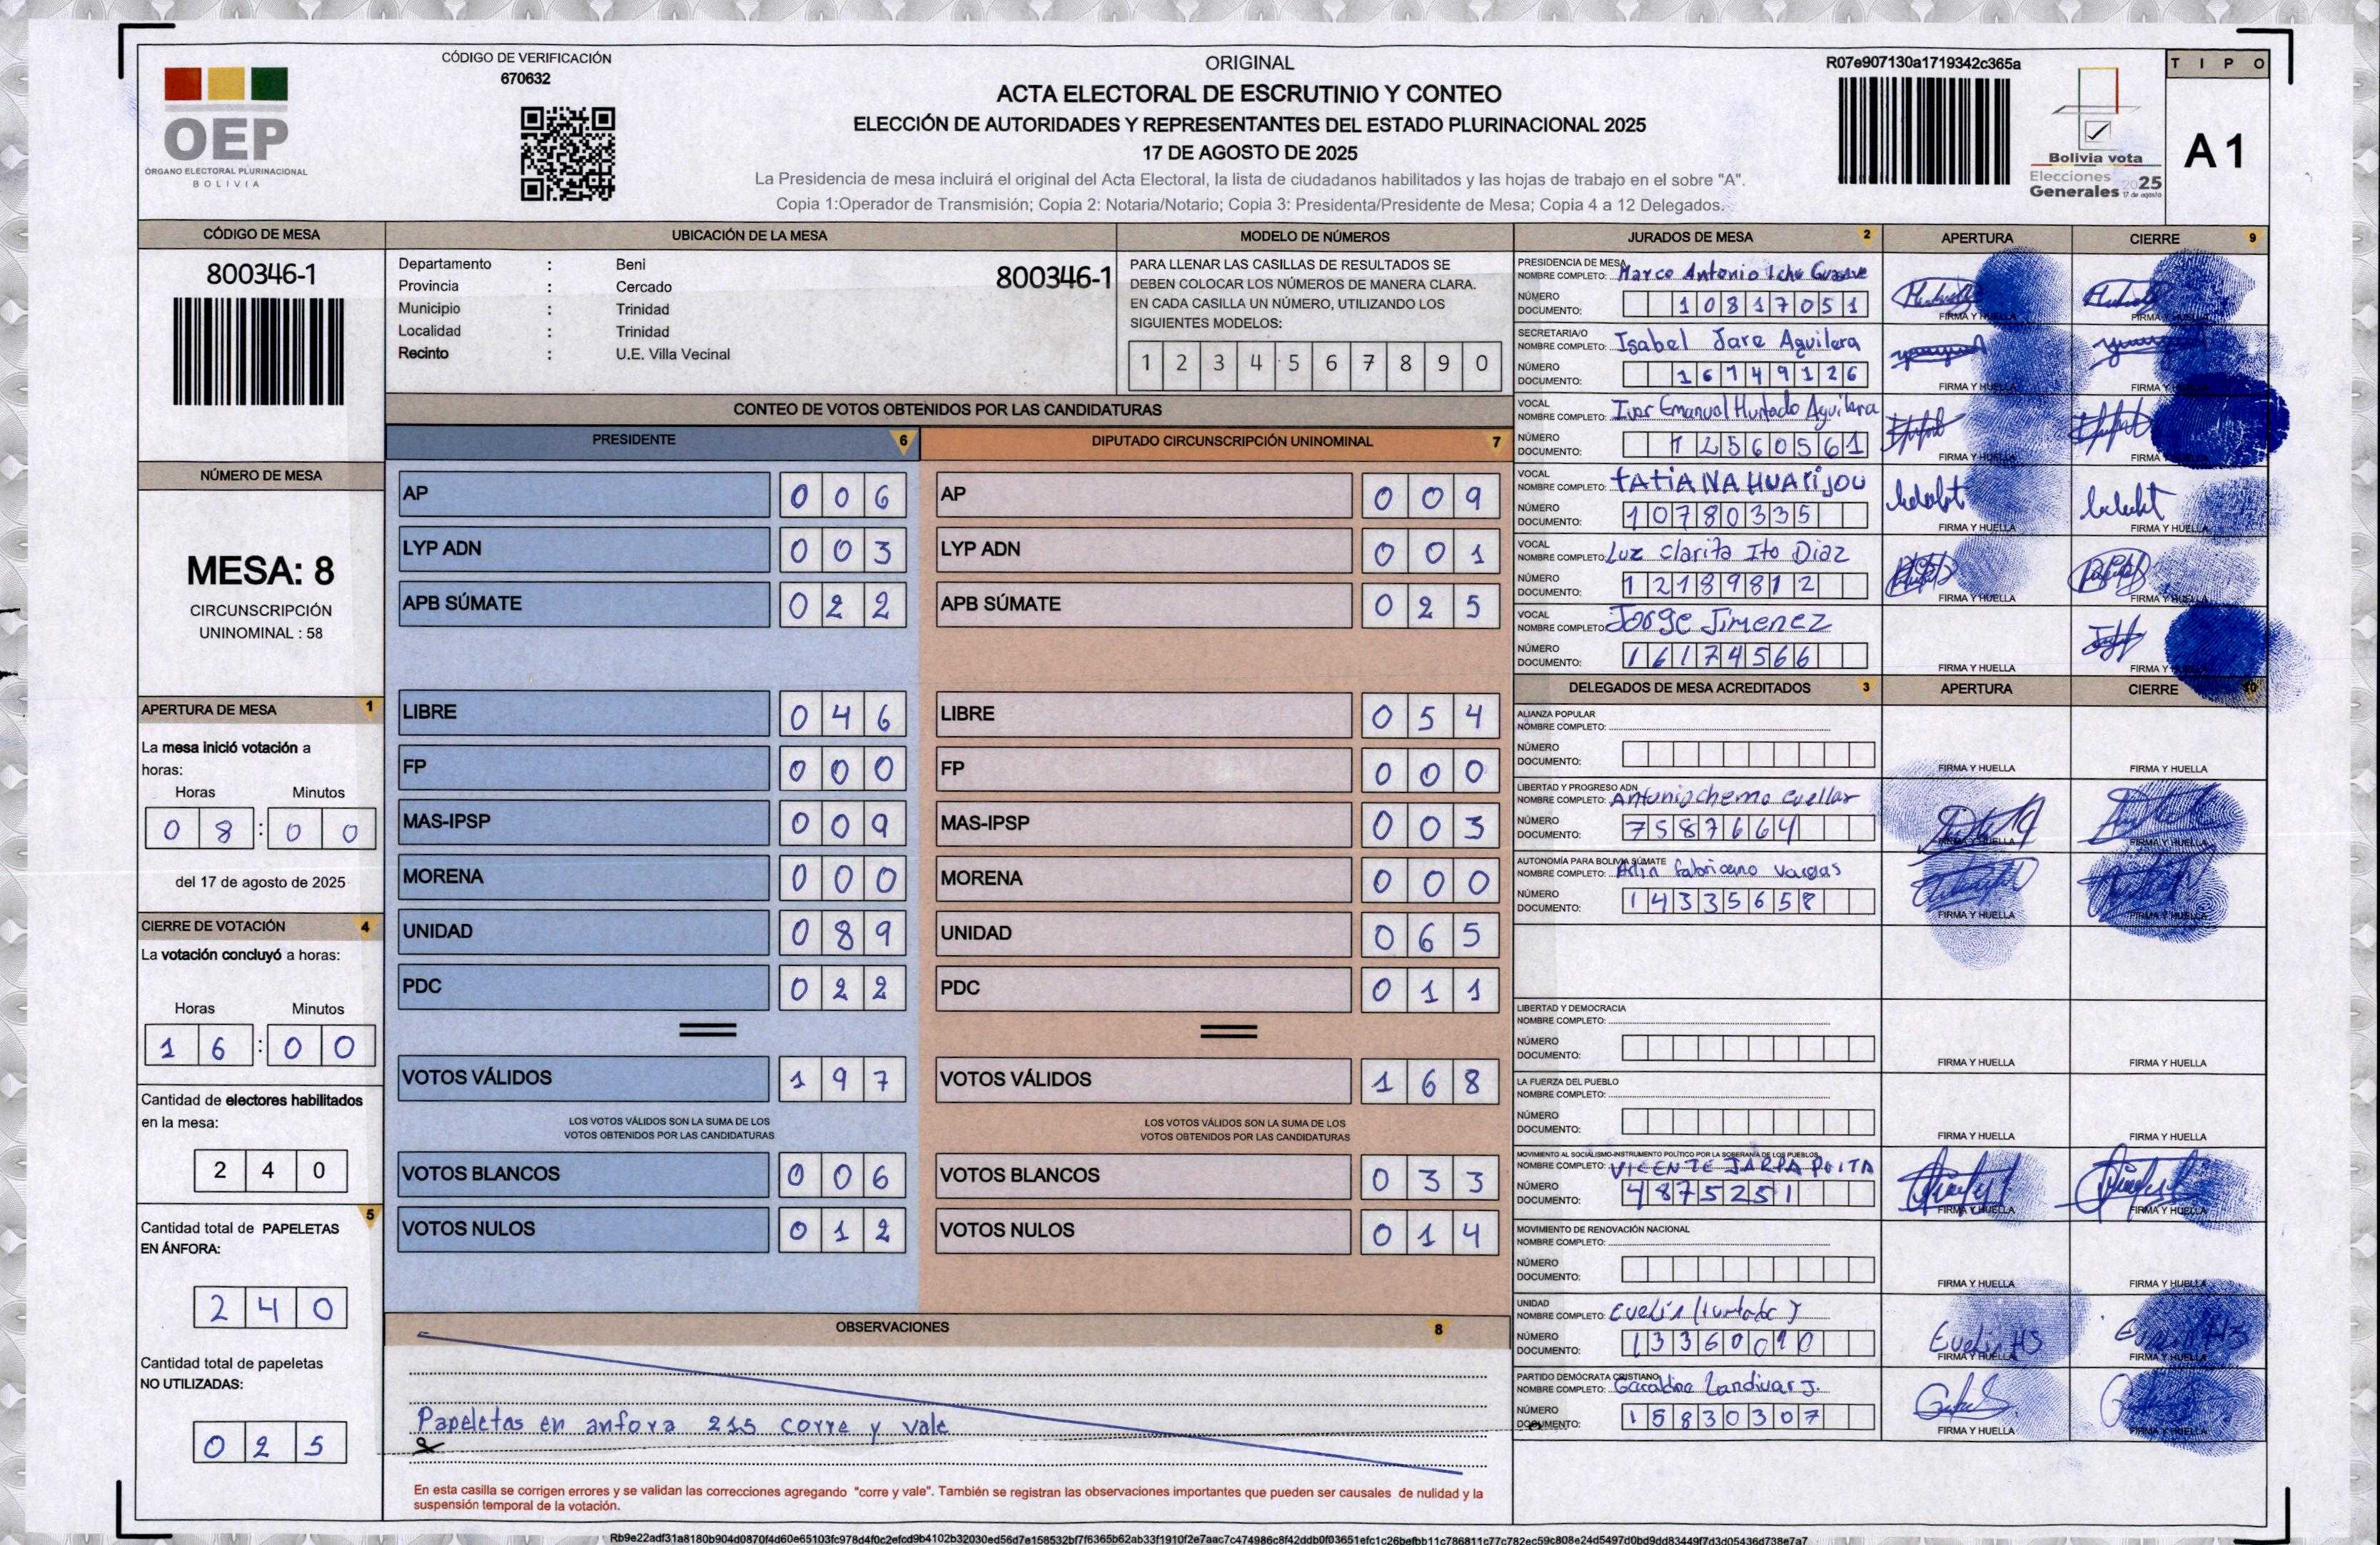 CÓDIGO DE VERIFICACIÓN
670632
OEP
ÓRGANO ELECTORAL PLURINACIONAL
BOLIVIA
ORIGINAL
ACTA ELECTORAL DE ESCRUTINIO Y CONTEO
ELECCIÓN DE AUTORIDADES Y REPRESENTANTES DEL ESTADO PLURINACIONAL 2025
17 DE AGOSTO DE 2025
La Presidencia de mesa incluirá el original del Acta Electoral, la lista de ciudadanos habilitados y las hojas de trabajo en el sobre "A".
Copia 1:Operador de Transmisión; Copia 2: Notaria/Notario; Copia 3: Presidenta/Presidente de Mesa; Copia 4 a 12 Delegados.
R07e907130a1719342c365a
Bolivia vota
Elecciones
Generales 2025
17 de agosto
TIPO
A1
CÓDIGO DE MESA
800346-1
UBICACIÓN DE LA MESA
Departamento : Beni
Provincia : Cercado
Municipio : Trinidad
Localidad : Trinidad
Recinto : U.E. Villa Vecinal
800346-1
MODELO DE NÚMEROS
PARA LLENAR LAS CASILLAS DE RESULTADOS SE
DEBEN COLOCAR LOS NÚMEROS DE MANERA CLARA.
EN CADA CASILLA UN NÚMERO, UTILIZANDO LOS
SIGUIENTES MODELOS:
1 2 3 4 5 6 7 8 9 0
NÚMERO DE MESA
MESA: 8
CIRCUNSCRIPCIÓN
UNINOMINAL : 58
APERTURA DE MESA 1
La mesa inició votación a
horas:
Horas Minutos
0 8 : 0 0
del 17 de agosto de 2025
CIERRE DE VOTACIÓN 4
La votación concluyó a horas:
Horas Minutos
1 6 : 0 0
Cantidad de electores habilitados
en la mesa:
2 4 0
5
Cantidad total de PAPELETAS
EN ÁNFORA:
2 4 0
Cantidad total de papeletas
NO UTILIZADAS:
0 2 5
CONTEO DE VOTOS OBTENIDOS POR LAS CANDIDATURAS
PRESIDENTE 6
AP 0 0 6
LYP ADN 0 0 3
APB SÚMATE 0 2 2
LIBRE 0 4 6
FP 0 0 0
MAS-IPSP 0 0 9
MORENA 0 0 0
UNIDAD 0 8 9
PDC 0 2 2
VOTOS VÁLIDOS 1 9 7
LOS VOTOS VÁLIDOS SON LA SUMA DE LOS
VOTOS OBTENIDOS POR LAS CANDIDATURAS
VOTOS BLANCOS 0 0 6
VOTOS NULOS 0 1 2
DIPUTADO CIRCUNSCRIPCIÓN UNINOMINAL 7
AP 0 0 9
LYP ADN 0 0 1
APB SÚMATE 0 2 5
LIBRE 0 5 4
FP 0 0 0
MAS-IPSP 0 0 3
MORENA 0 0 0
UNIDAD 0 6 5
PDC 0 1 1
VOTOS VÁLIDOS 1 6 8
LOS VOTOS VÁLIDOS SON LA SUMA DE LOS
VOTOS OBTENIDOS POR LAS CANDIDATURAS
VOTOS BLANCOS 0 3 3
VOTOS NULOS 0 1 4
OBSERVACIONES 8
Papeletas en anfora 215 corre y vale
En esta casilla se corrigen errores y se validan las correcciones agregando "corre y vale". También se registran las observaciones importantes que pueden ser causales de nulidad y la
suspensión temporal de la votación.
JURADOS DE MESA 2 APERTURA CIERRE 9
PRESIDENCIA DE MESA
NOMBRE COMPLETO: Marco Antonio
NÚMERO
DOCUMENTO: 1 0 8 1 7 0 5 1
FIRMA Y HUELLA FIRMA Y HUELLA
SECRETARIA/O
NOMBRE COMPLETO: Isabel Jare Aguilera
NÚMERO
DOCUMENTO: 1 6 7 4 9 1 2 6
FIRMA Y HUELLA FIRMA Y HUELLA
VOCAL
NOMBRE COMPLETO: Emanuel Hurtado Aguilera
NÚMERO
DOCUMENTO: 1 2 5 6 0 5 6 1
FIRMA Y HUELLA FIRMA Y HUELLA
VOCAL
NOMBRE COMPLETO: TATIANA
NÚMERO
DOCUMENTO: 1 0 7 8 0 3 3 5
FIRMA Y HUELLA FIRMA Y HUELLA
VOCAL
NOMBRE COMPLETO: Luz Clarita Ito Diaz
NÚMERO
DOCUMENTO: 1 2 1 8 9 8 1 2
FIRMA Y HUELLA FIRMA Y HUELLA
VOCAL
NOMBRE COMPLETO: Jorge Jimenez
NÚMERO
DOCUMENTO: 1 6 1 7 4 5 6 6
FIRMA Y HUELLA FIRMA Y HUELLA
DELEGADOS DE MESA ACREDITADOS 3 APERTURA CIERRE 10
ALIANZA POPULAR
NOMBRE COMPLETO:
NÚMERO
DOCUMENTO:
FIRMA Y HUELLA FIRMA Y HUELLA
LIBERTAD Y PROGRESO ADN
NOMBRE COMPLETO: Antonio chemo cuellar
NÚMERO
DOCUMENTO: 7 5 8 7 6 6 4
FIRMA Y HUELLA FIRMA Y HUELLA
AUTONOMÍA PARA BOLIVIA SÚMATE
NOMBRE COMPLETO: Arlin fabricano Vargas
NÚMERO
DOCUMENTO: 1 4 3 3 5 6 5 8
FIRMA Y HUELLA FIRMA Y HUELLA
LIBERTAD Y DEMOCRACIA
NOMBRE COMPLETO:
NÚMERO
DOCUMENTO:
FIRMA Y HUELLA FIRMA Y HUELLA
LA FUERZA DEL PUEBLO
NOMBRE COMPLETO:
NÚMERO
DOCUMENTO:
FIRMA Y HUELLA FIRMA Y HUELLA
MOVIMIENTO AL SOCIALISMO-INSTRUMENTO POLÍTICO POR LA SOBERANÍA DE LOS PUEBLOS
NOMBRE COMPLETO: VICENTE
NÚMERO
DOCUMENTO: 4 8 7 5 2 5 1
FIRMA Y HUELLA FIRMA Y HUELLA
MOVIMIENTO DE RENOVACIÓN NACIONAL
NOMBRE COMPLETO:
NÚMERO
DOCUMENTO:
FIRMA Y HUELLA FIRMA Y HUELLA
UNIDAD
NOMBRE COMPLETO: Evelin Hurtado
NÚMERO
DOCUMENTO: 1 3 3 6 0 0 1 0
Evelin HS
FIRMA Y HUELLA FIRMA Y HUELLA
PARTIDO DEMÓCRATA CRISTIANO
NOMBRE COMPLETO: Geraldine Landivar J.
NÚMERO
DOCUMENTO: 1 5 8 3 0 3 0 7
FIRMA Y HUELLA FIRMA Y HUELLA